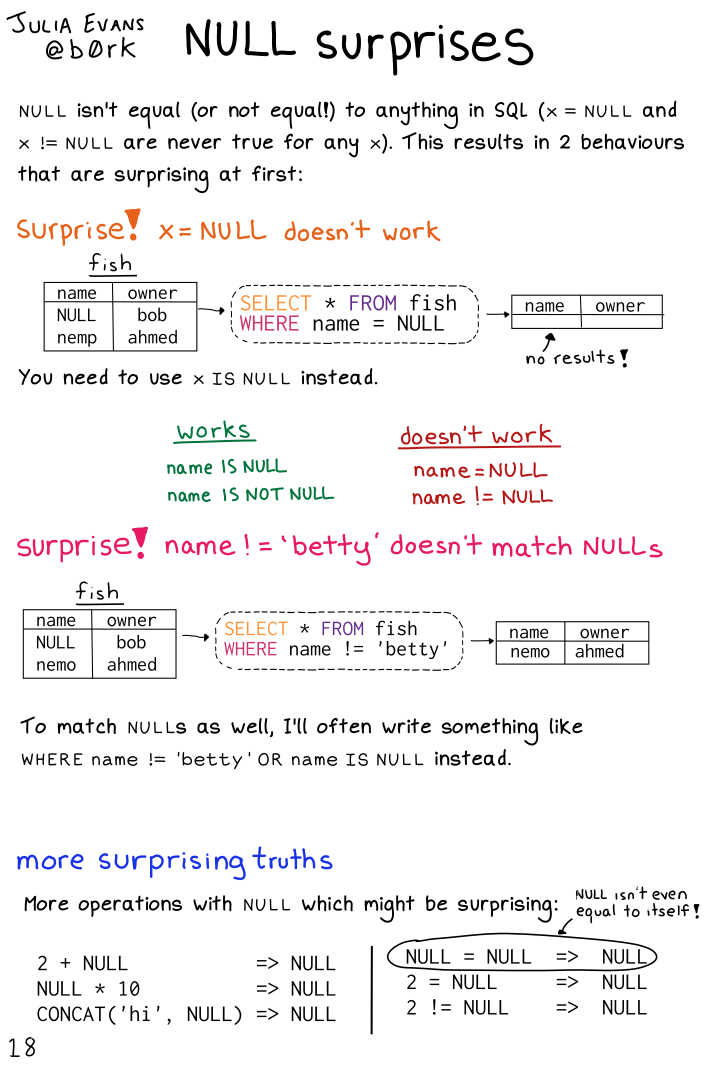 JULIA EVANS
@b0rk
NULL surprises
NULL isn't equal (or not equal!) to anything in SQL (x = NULL and
x != NULL are never true for any x). This results in 2 behaviours
that are surprising at first:
surprise! x = NULL doesn't work
fish
name owner
NULL bob
nemp ahmed
SELECT * FROM fish
WHERE name = NULL
name owner
no results!
You need to use x IS NULL instead.
works
name IS NULL
name IS NOT NULL
doesn't work
name = NULL
name != NULL
surprise! name != 'betty' doesn't match NULLs
fish
name owner
NULL bob
nemo ahmed
SELECT * FROM fish
WHERE name != 'betty'
name owner
nemo ahmed
To match NULLs as well, I'll often write something like
WHERE name != 'betty' OR name IS NULL instead.
more surprising truths
More operations with NULL which might be surprising:
NULL isn't even
equal to itself!
2 + NULL => NULL
NULL * 10 => NULL
CONCAT('hi', NULL) => NULL
NULL = NULL => NULL
2 = NULL => NULL
2 != NULL => NULL
18